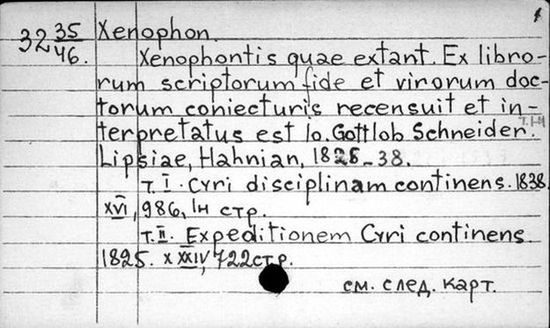 32 35/46. Xenophon.
Xenophontis quae extant. Ex libro-
rum scriptorum fide et virorum doc-
torum coniecturis recensuit et in-
terpretatus est Io. Gottlob Schneider. т. I-II
Lipsiae, Hahnian, 1825-38.
т. I. Cyri disciplinam continens. 1838.
XVI, 986, IH стр.
т. II. Expeditionem Cyri continens.
1825. XXXIV, 722 стр.
см. след. карт.